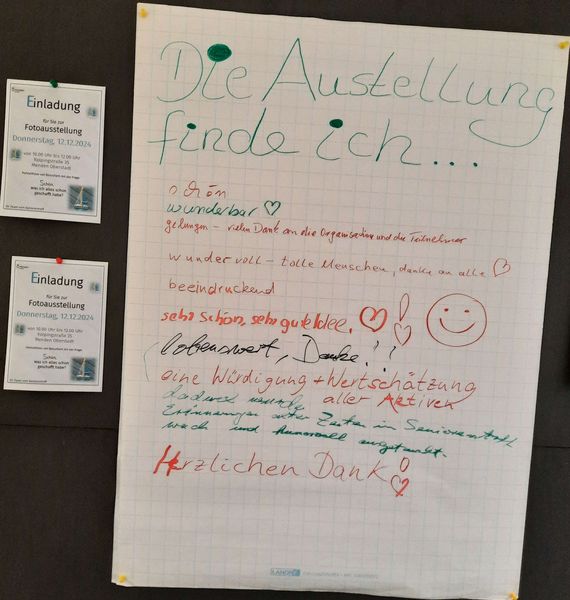 Einladung
für Sie zur
Fotoausstellung
Donnerstag, 12.12.2024
von 10.00 Uhr bis 12.00 Uhr
Kolpingstraße 35
Menden Oberstadt
Schön,
was ich alles schon
geschafft habe!
Einladung
für Sie zur
Fotoausstellung
Donnerstag, 12.12.2024
von 10.00 Uhr bis 12.00 Uhr
Kolpingstraße 35
Menden Oberstadt
Schön,
was ich alles schon
geschafft habe!
Die Austellung
finde ich...
schön
wunderbar
gelungen – vielen Dank an die Organisation und die Teilnehmer
wundervoll – tolle Menschen, danke an alle
beeindruckend
sehr schön, sehr gute Idee.
lobenswert, Danke!!
eine Würdigung + Wertschätzung
aller Aktiven
dadurch wurde
Erinnerungen Zeiten im
wach und
Herzlichen Dank!
LANDRÉ